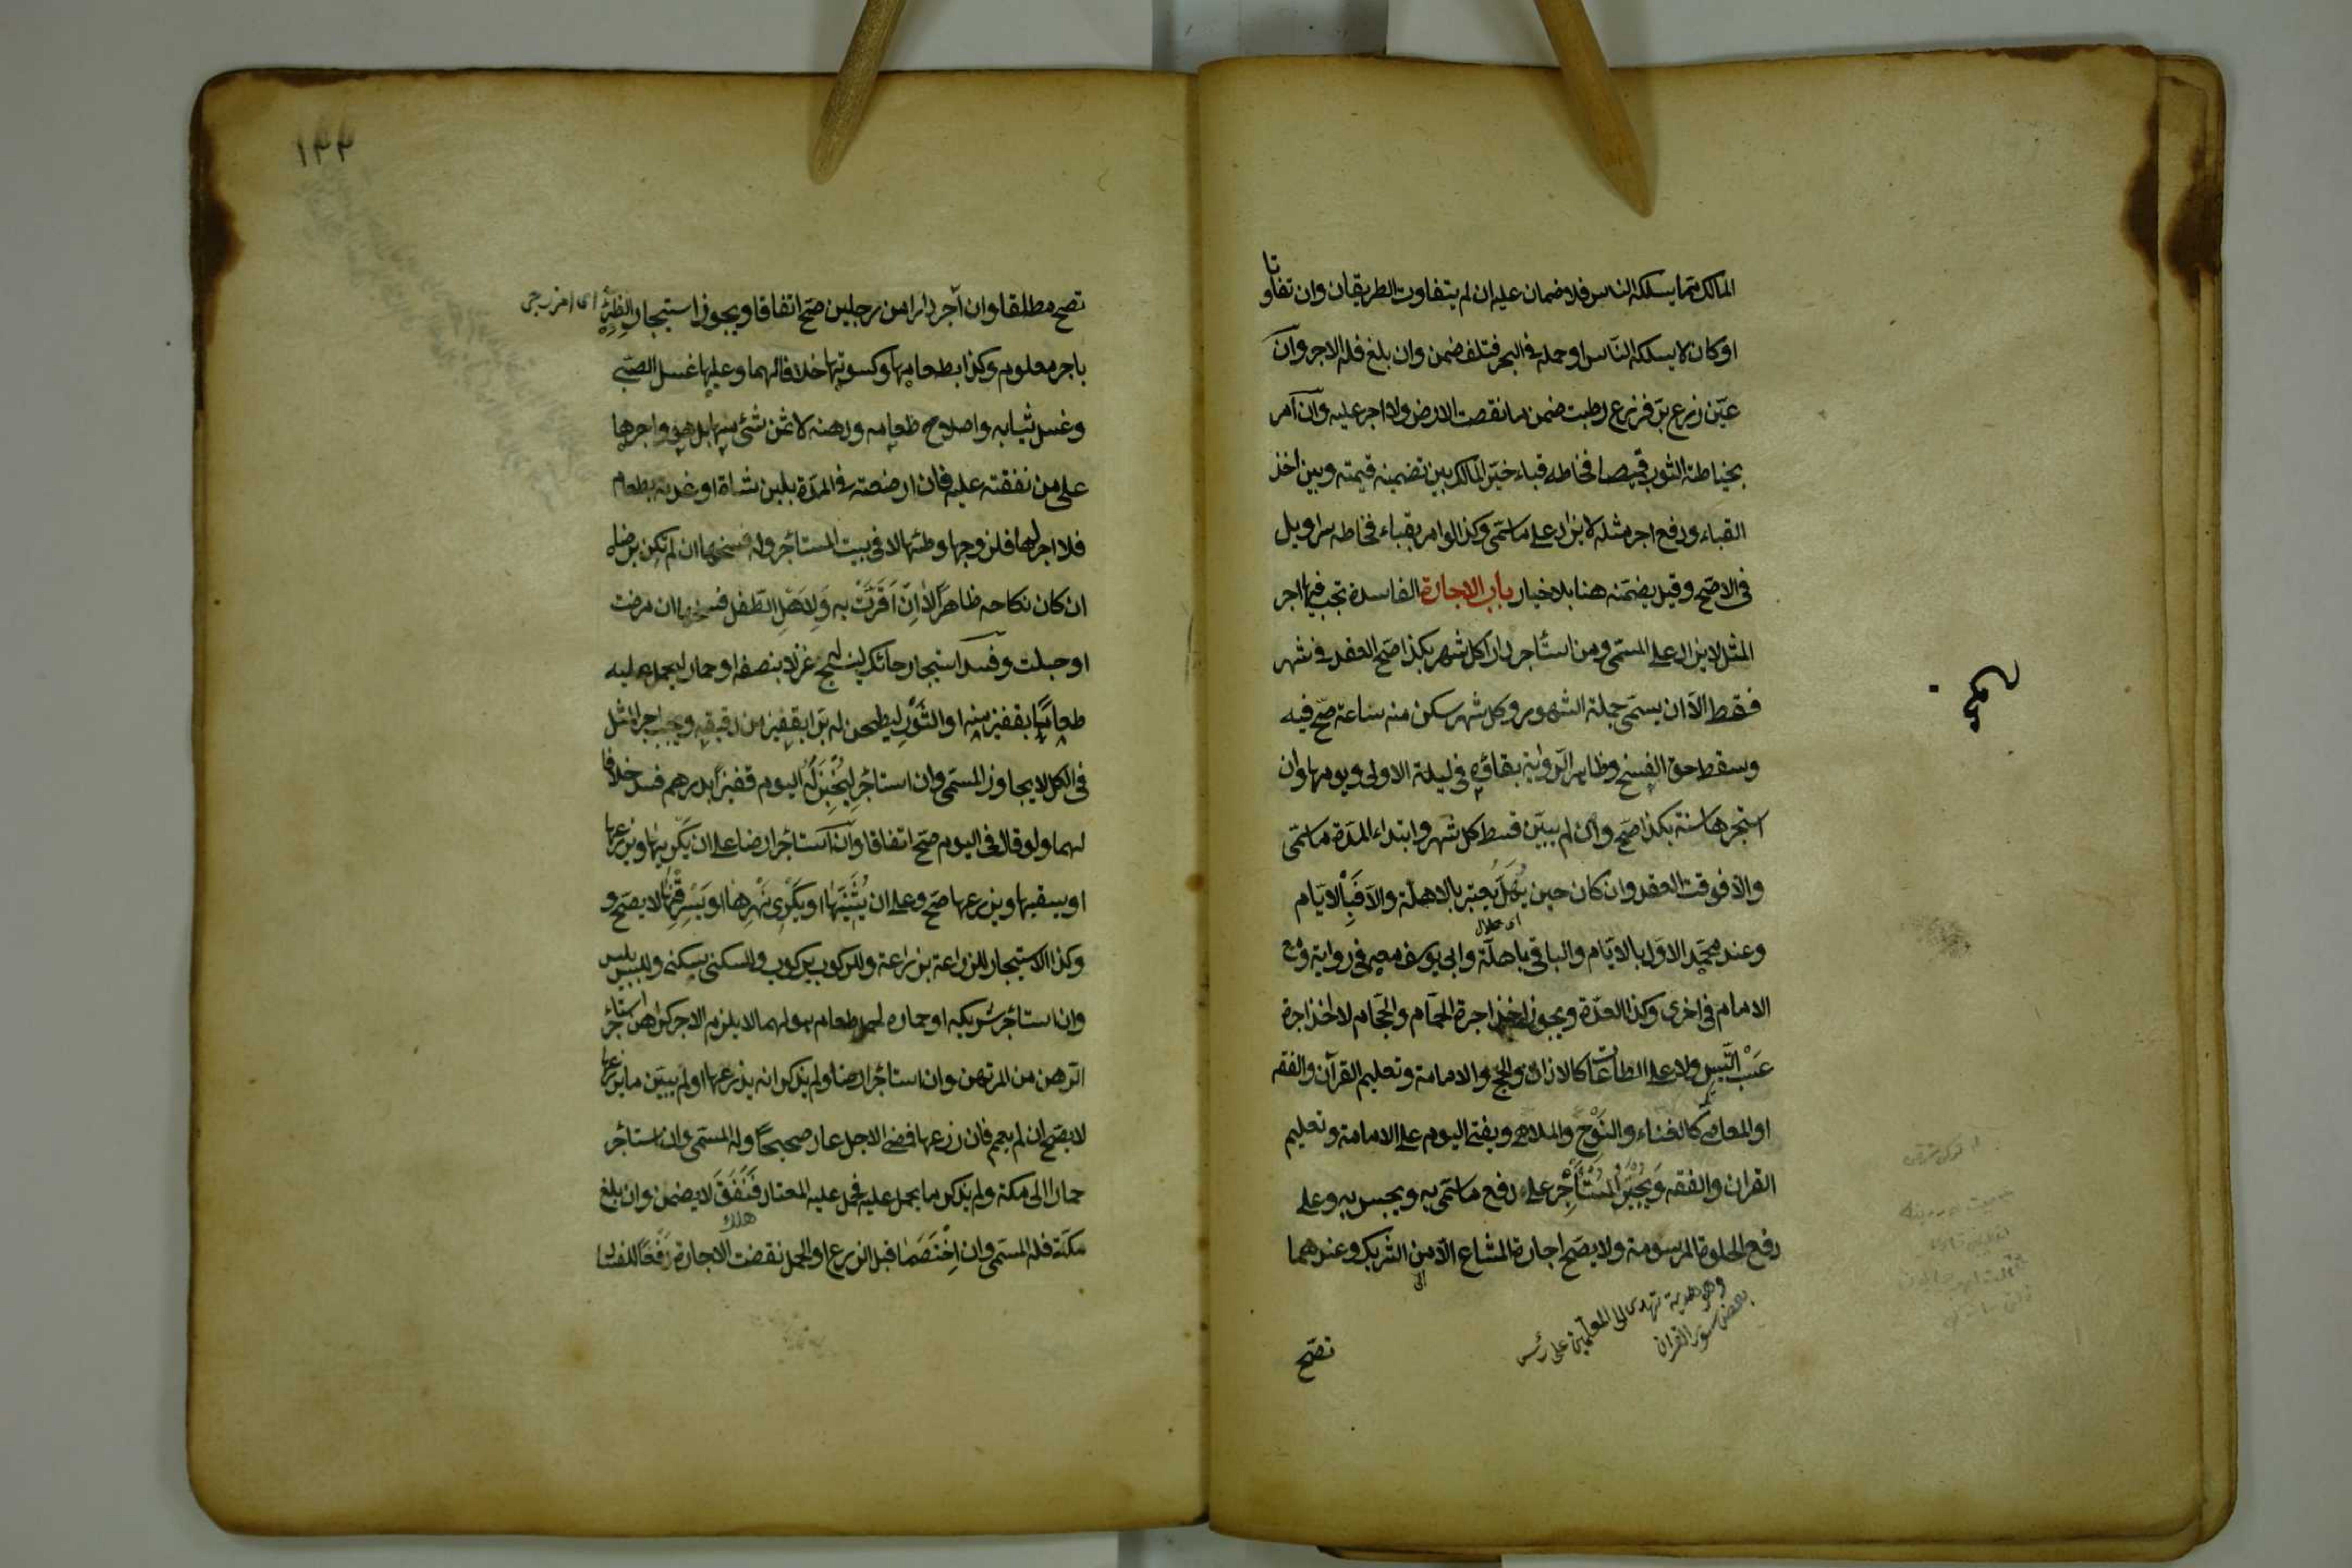 المالك مما يسلكه الناس فلا ضمان عليه ان لم يتفاوت الطريقان وان تفاوتا
او كان لا يسلكه الناس او حمله في البحر فتلف ضمن وان بلغ فله الاجر وان
عيّن زرع برّ فزرع رطبة ضمن ما نقصت الارض ولا اجر عليه وان امر
بخياطة الثوب قميصا فخاطه قباء خيّر المالك بين تضمينه قيمته وبين اخذ
القباء ودفع اجر مثله لا يزاد على ما سمّى وكذا لو امر بقباء فخاطه سراويل
في الاصح وقيل يضمنه هنا بلا خيار باب الاجارة الفاسدة تجب فيها اجر
المثل لا يزاد على المسمّى ومن استأجر دارا كل شهر بكذا صح العقد في شهر
فقط الاّ ان يسمّى جملة الشهور وكل شهر سكن منه ساعة صحّ فيه
وسقط حق الفسخ وظاهر الرواية بقائه في ليلة الاولى ويومها وان
استجرها سنة بكذا صح وان لم يبيّن قسط كل شهر وابتداء المدة ما سمّى
والاّ فوقت العقد وان كان حين يُهَلّ يعتبر بالاهلّة والاّ فبالايّام
اى هلال
وعند محمد الاول بالايّام والباقي باهلّة وابي يوسف معه في رواية ومع
الامام في اخرى وكذا العدّة ويجوز اخذ اجرة الحمّام والحجّام لا اخذ اجرة
عَسْب التَّيس ولا على الطاعات كالاذان والحج والامامة وتعليم القرآن والفقه
او المعاصي كالغناء والنَّوْح والملاهي ويفتى اليوم على الامامة وتعليم
القران والفقه وَيُجْبَرُ المُسْتَأْجِر على دفع ما سمّى به ويحبس به وعلى
دفع الحلوة المرسومة ولا يصح اجارة المشاع الاّ من الشريك وعندهما
وهو هدية تهدى الى المعلمين على رئس
بعض سور القران
تصحّ
١٣٣
تصح مطلقا وان آجر دارا من رجلين صح اتفاقا ويجوز استيجار الظِئْرِ
باجر معلوم وكذا بطعامها وكسوتها خلافا لهما وعليها غسل الصبي
وغسل ثيابه واصلاح طعامه ودهنه لا ثمن شئ منها بل هو واجرها
على من نفقته عليه فان ارضعته في المدة بلبن شاة او غذته بطعام
فلا اجر لها فلزوجها وطئها لا في بيت المستأجر وله فسخها ان لم تكن برضاه
ان كان نكاحه ظاهرًا لا ان اَقَرَّتْ به وَلِاَهْلِ الطّفل فسخها ان مرضت
او حبلت وفسد استيجار حائك لينسج غزلا بنصفه او حمار ليحمل عليه
طعاما بقفيز منه او الثَّوْرِ ليطحن له برّا بقفيز من دقيقه ويجب اجر المثل
في الكل لا يجاوز المسمّى وان استأجر لِيُخْبِزَ لَهُ اليوم قفيزا بدرهم فسد خلافا
لهما ولو قال في اليوم صح اتفاقا وان استأجر ارضا على ان يَكْرِيَها ويزرعها
او يسقيها ويزرعها صح وعلى ان يُثَنِّيَهَا او يَكْرِىَ نَهْرَهَا او يُسَرْقِنَهَا لا يصح و
وكذا الاستيجار للزراعة بزراعة وللركوب بركوب وللسكنى بسكنى وللبس بلبس
وان استأجر شريكه او حماره لحمل طعام هو لهما لا يلزم الاجر كراهن استأجر
الرهن من المرتهن وان استأجر ارضا ولم يذكر انه يزرعها او لم يبيّن ما يزرعها
لا يصح ان لم يعم فان زرعها فمضى الاجل عاد صحيحا وله المسمى وان استأجر
حمارا الى مكة ولم يذكر ما يحمل عليه فحمل عليه المعتاد فَنَفَقَ لا يضمن وان بلغ
هلك
مكة فله المسمى وان اِخْتَصَمَا قبل الزرع او الحمل نقضت الاجارة رَفْعًا للفساد